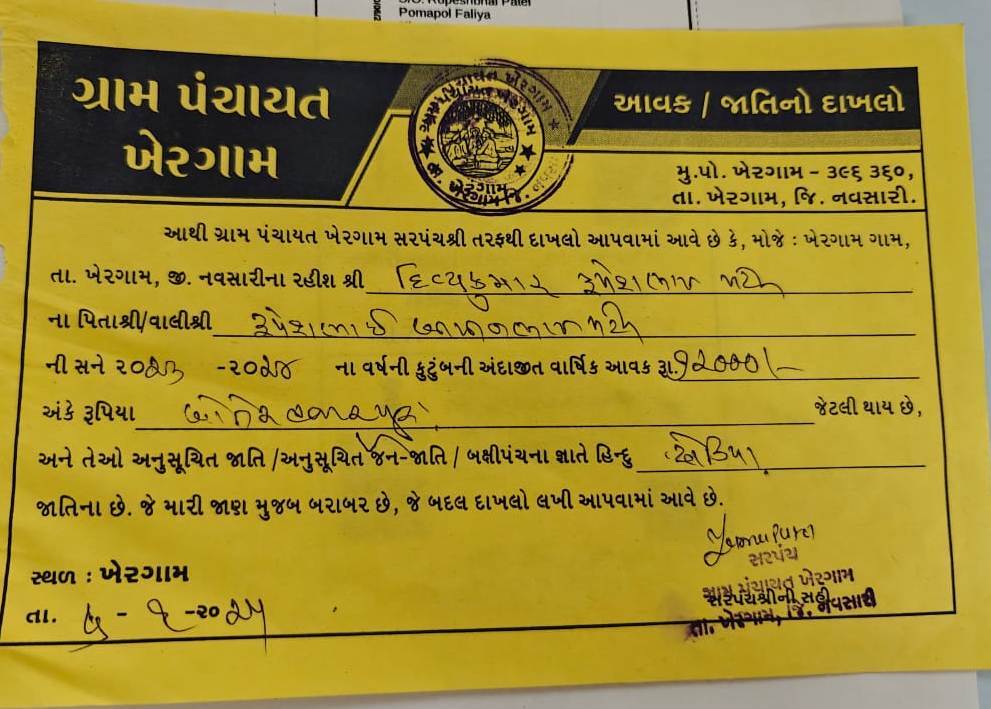 S/O. Rupeshbhai Patel
Pomapol Faliya
ગ્રામ પંચાયત
ખેરગામ
આવક / જાતિનો દાખલો
મુ.પો. ખેરગામ – ૩૯૬ ૩૬૦,
તા. ખેરગામ, જિ. નવસારી.
આથી ગ્રામ પંચાયત ખેરગામ સરપંચશ્રી તરફથી દાખલો આપવામાં આવે છે કે, મોજે : ખેરગામ ગામ,
તા. ખેરગામ, જી. નવસારીના રહીશ શ્રી દિવ્યકુમાર રૂપેશભાઇ પટેલ
ના પિતાશ્રી/વાલીશ્રી રૂપેશભાઈ પટેલ
ની સને ૨૦૨૩ -૨૦૨૪ ના વર્ષની કુટુંબની અંદાજીત વાર્ષિક આવક રૂા.
અંકે રૂપિયા હજાર પુરા જેટલી થાય છે,
અને તેઓ અનુસૂચિત જાતિ / અનુસૂચિત જન-જાતિ / બક્ષીપંચના જ્ઞાતે હિન્દુ ધોડિયા
જાતિના છે. જે મારી જાણ મુજબ બરાબર છે, જે બદલ દાખલો લખી આપવામાં આવે છે.
સરપંચ
સ્થળ : ખેરગામ
ગ્રામ પંચાયત ખેરગામ
સરપંચશ્રીની સહી
તા. ખેરગામ, જિ. નવસારી
તા. - -૨૦૨૫